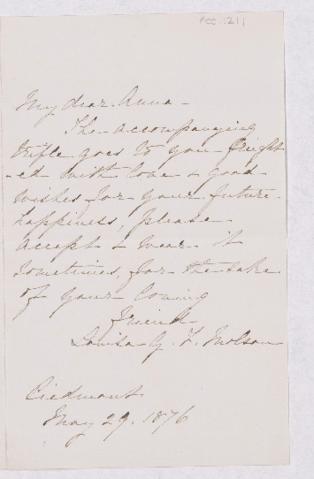 My dear Anna -
The accompanying
trifle goes to you freight
-ed with love & good
wishes for your future
happiness, please
accept & wear it
sometimes, for the sake
of your loving
friend
Louisa G. F. Molson
Piedmont
May 29. 1876